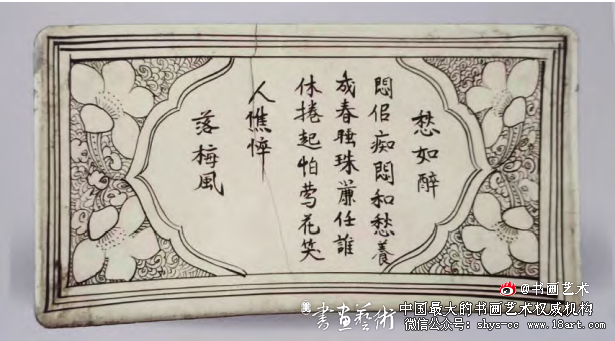 愁如醉
悶佀痴悶和愁養
成春睡珠簾任誰
休捲起怕鶯花笑
人憔悴
落梅風
@书画艺术
書畫藝術
中国最大的书画艺术权威机构
微信公众号: shys-cc www.18art.com